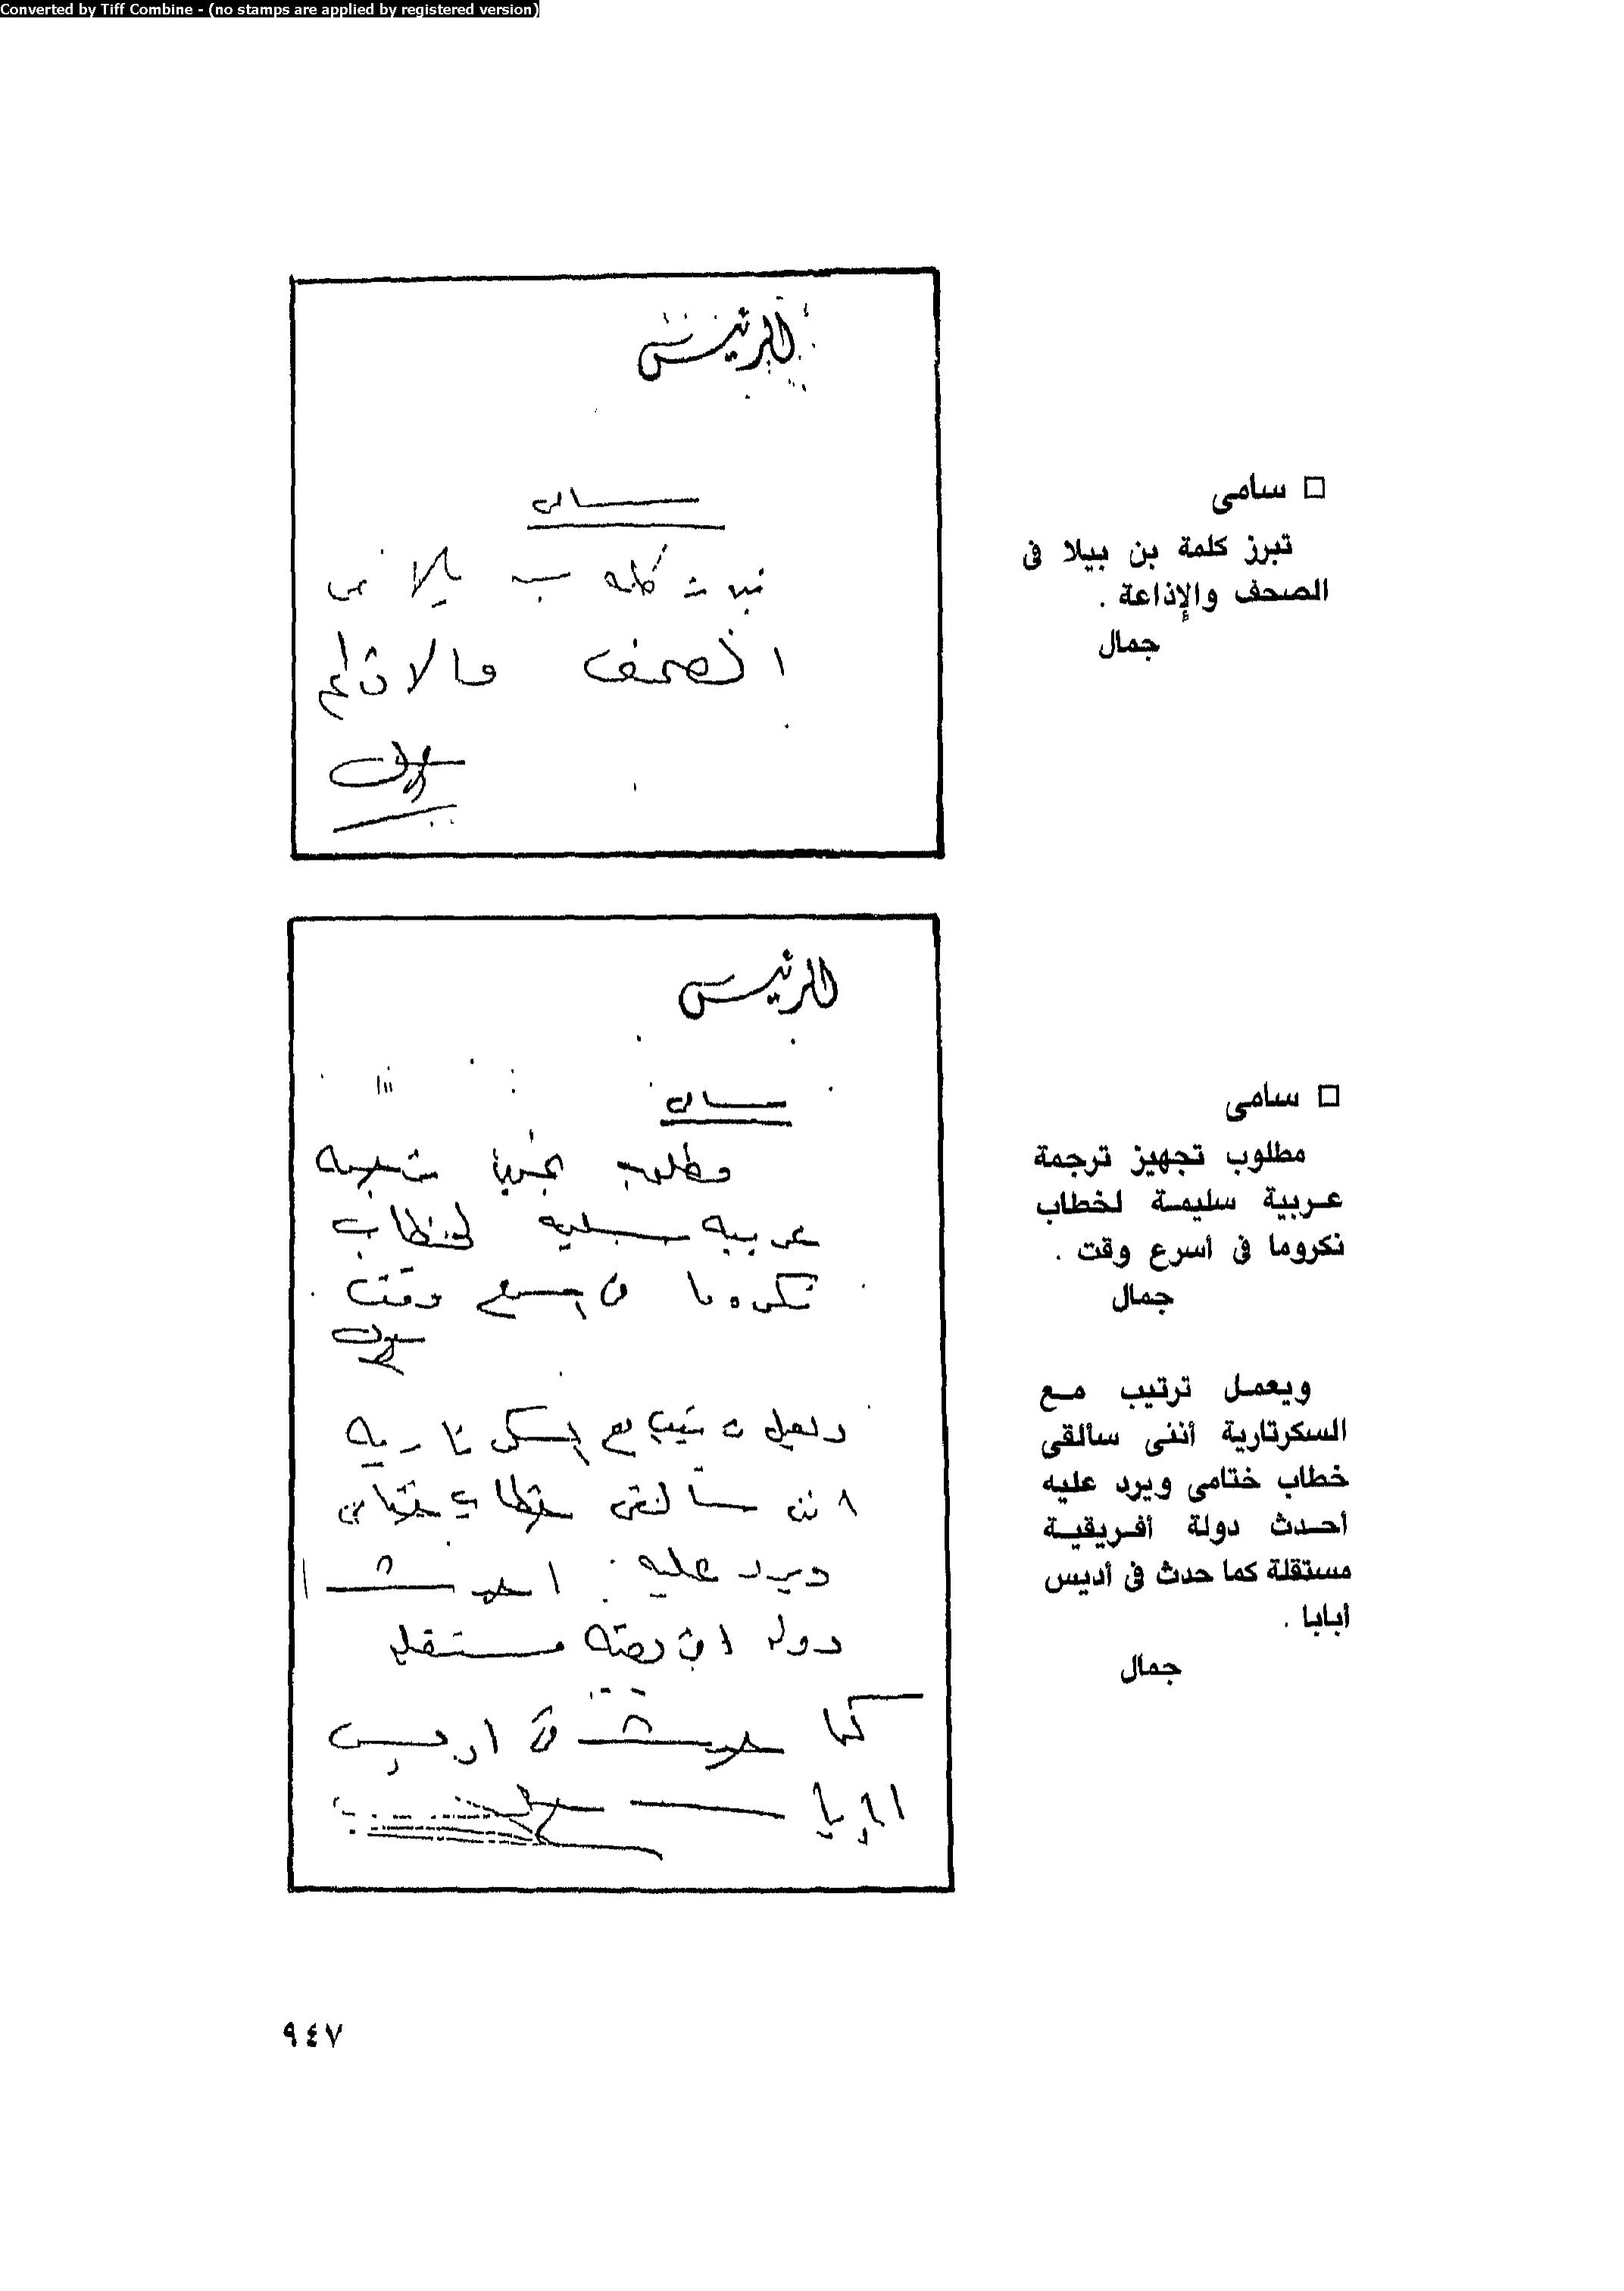 Converted by Tiff Combine - (no stamps are applied by registered version)
الرئيس
سامى
تبرز كلمة بن بيلا فى
الصحف والاذاعة
جمال
□ سامى
تبرز كلمة بن بيلا فى
الصحف والإذاعة .
جمال
الرئيس
سامى
مطلوب تجهيز ترجمه
عربيه سليمه لخطاب
نكروما فى اسرع وقت .
جمال
ويعمل ترتيب مع السكرتاريه
اننى سألقى خطاب ختامى
ويرد عليه احدث
دوله افريقيه مستقله
كما حدث فى اديس
ابابا
□ سامى
مطلوب تجهيز ترجمة
عربية سليمة لخطاب
نكروما فى أسرع وقت .
جمال
ويعمل ترتيب مع
السكرتارية أننى سألقى
خطاب ختامى ويرد عليه
أحدث دولة أفريقية
مستقلة كما حدث فى أديس
أبابا .
جمال
٩٤٧